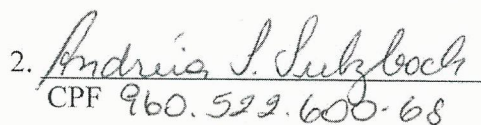 2. Andréia S. Sulzbach
CPF 960.522.600-68